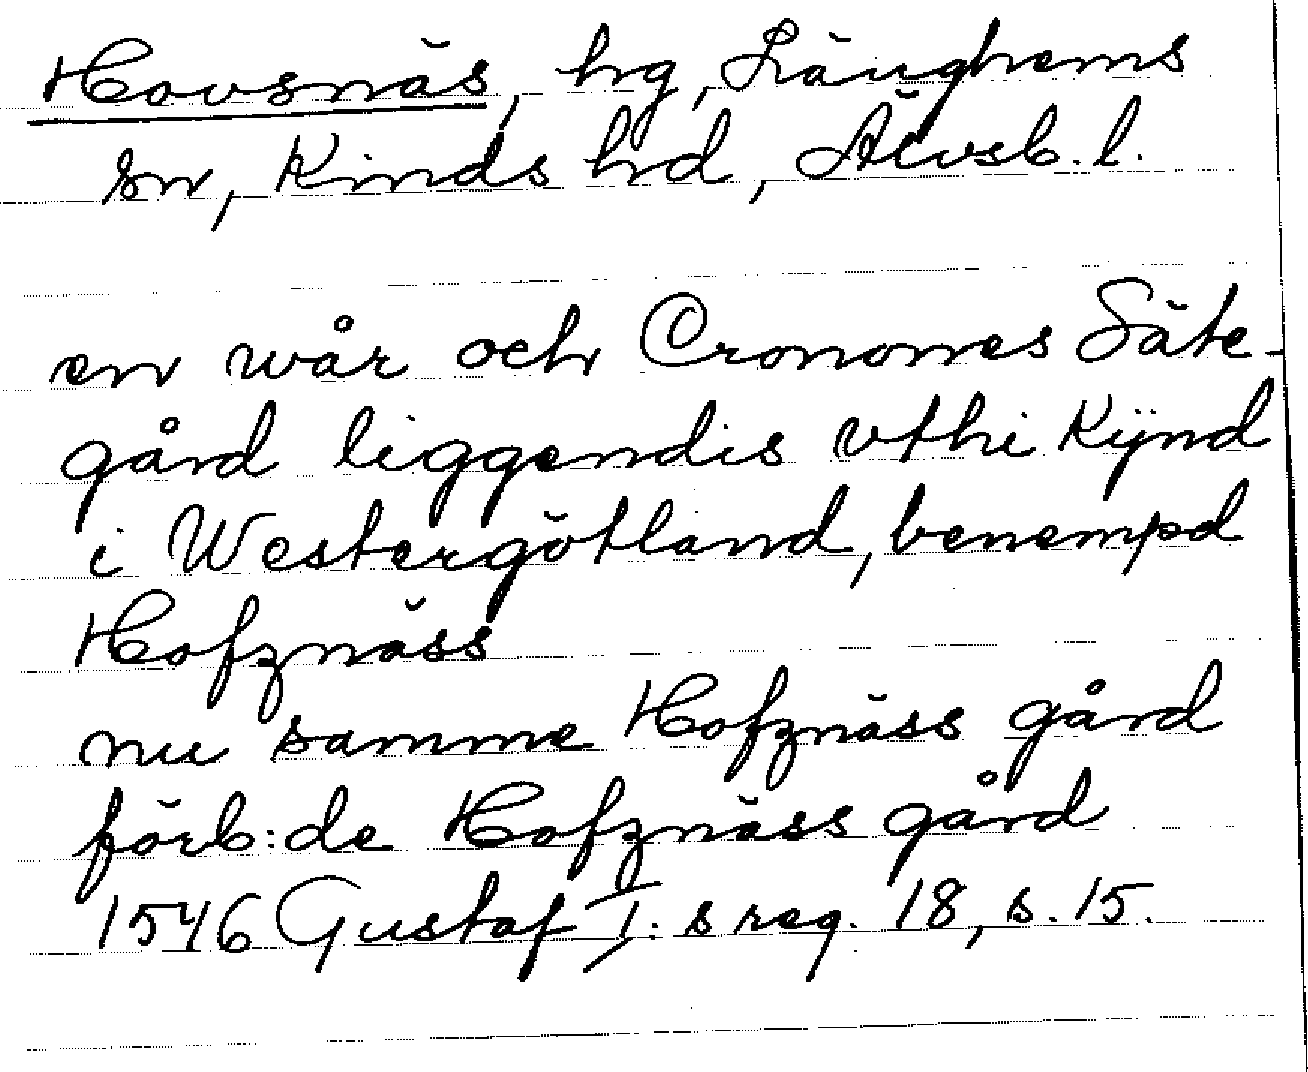 Hovsnäs, hg, Länghems
sn, Kinds hd, Älvsb. l.
en wår och Cronones Säte-
gård liggendis vthi Kÿnd
i Westergötland, benempd
Hofznäss
nu samme Hofznäss gård
förb:de Hofznäss gård
1546 Gustaf I:s reg. 18, s. 15.